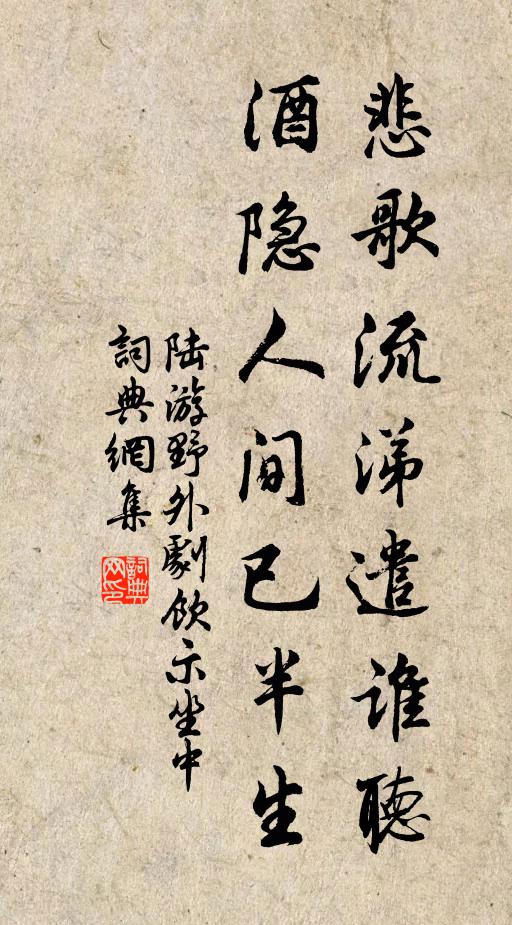 悲歌流涕遣谁聽
酒隐人间已半生
陆游野外劇飲示坐中
詞典網集
詞典
网印